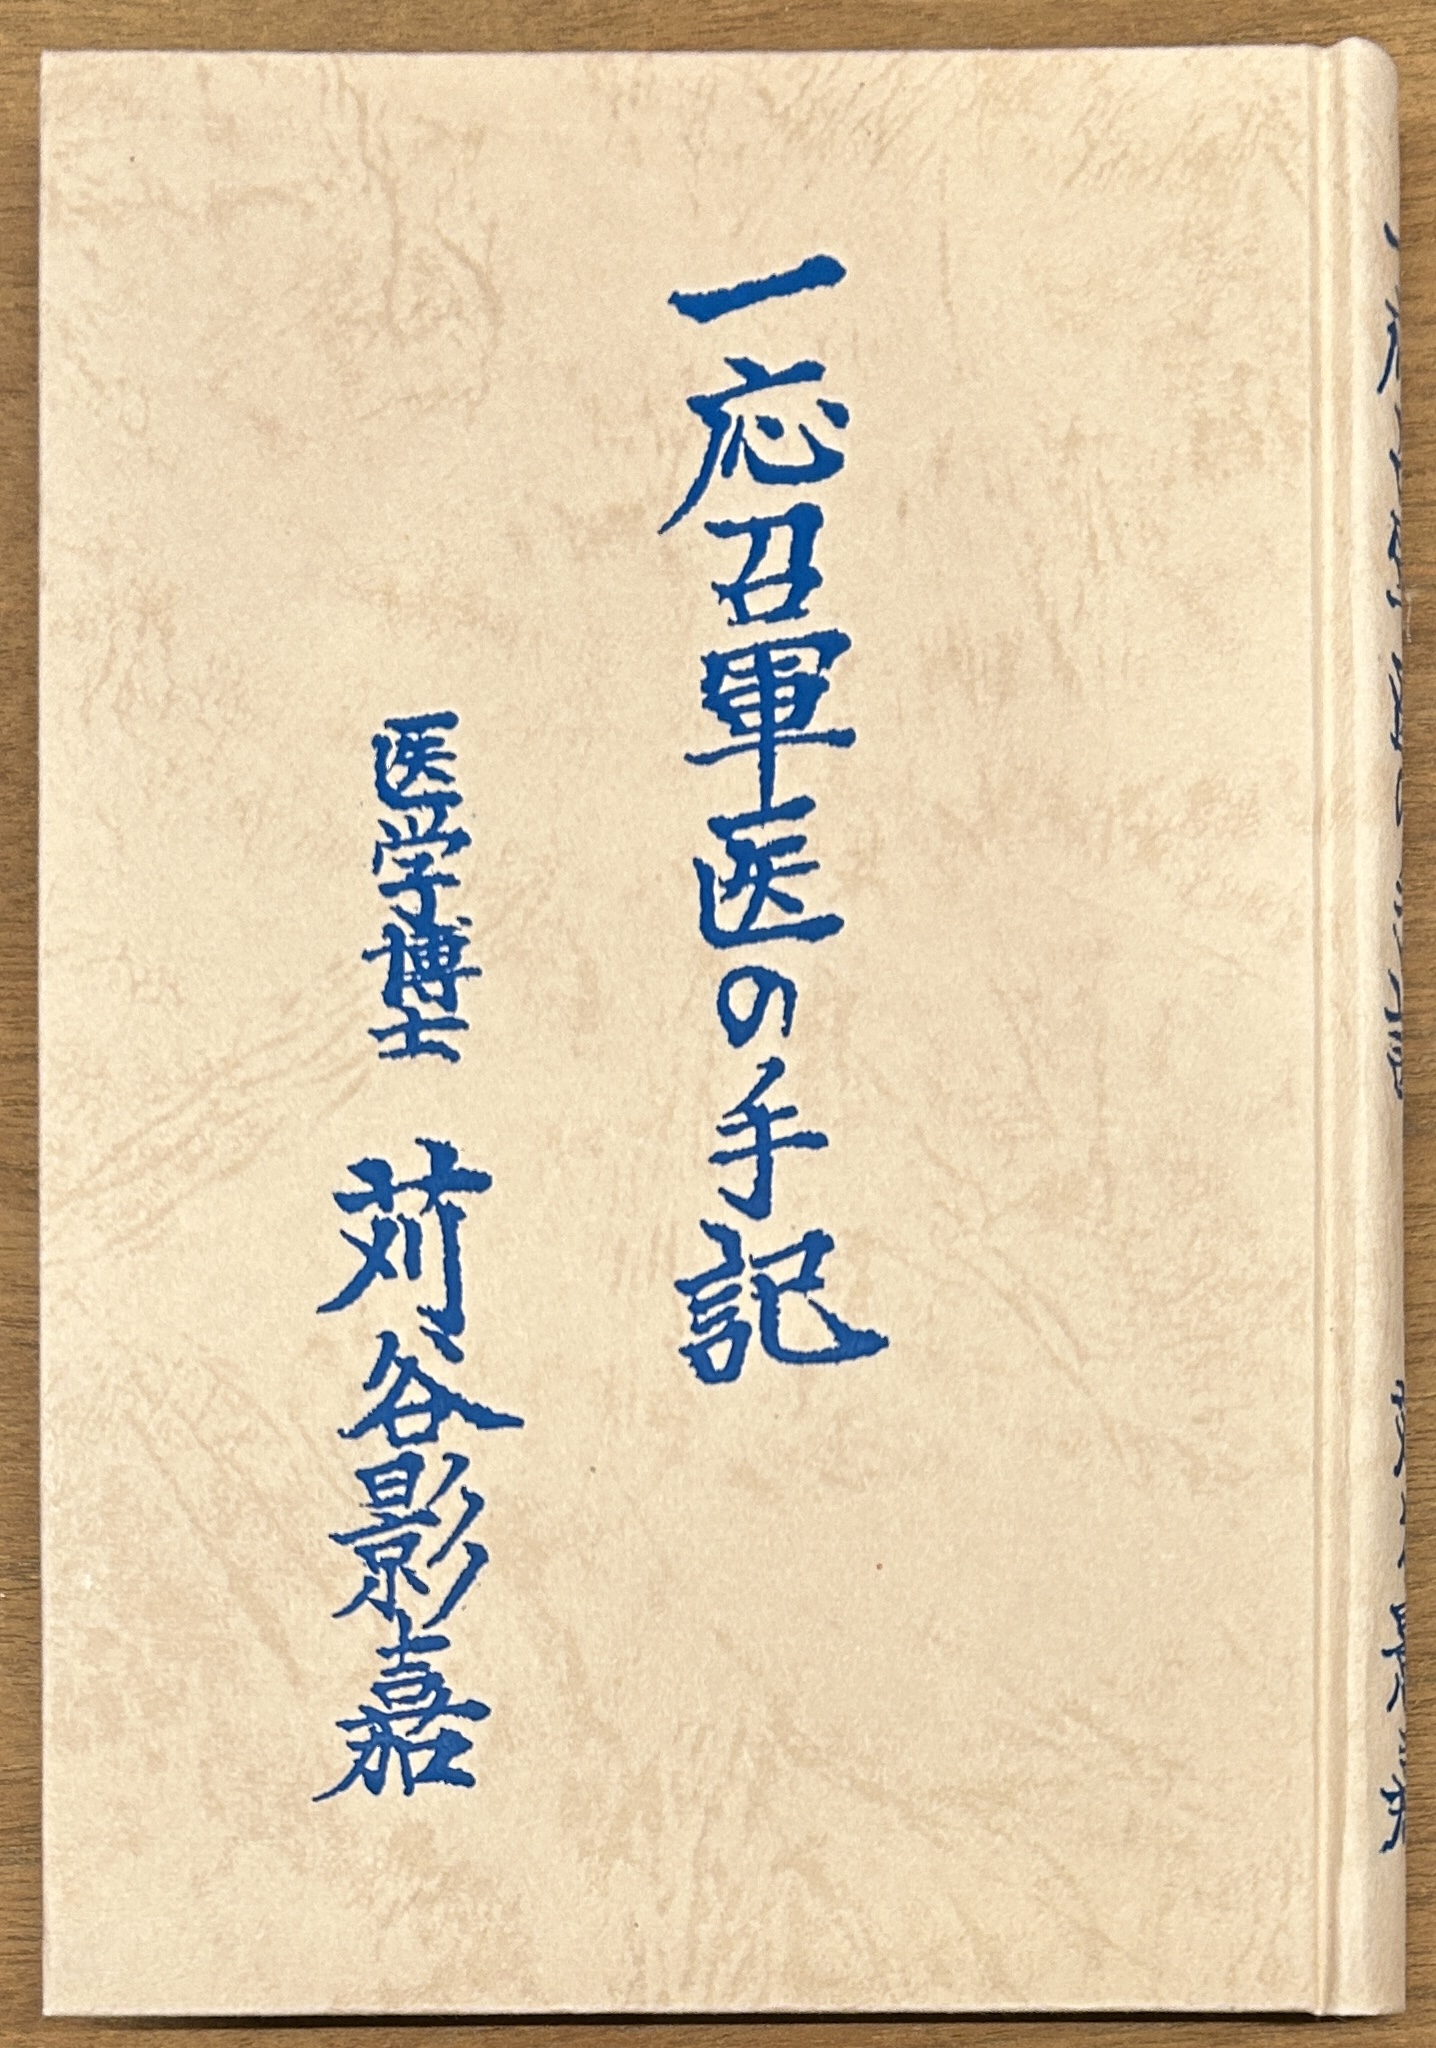 一応召軍医の手記
医学博士 苅谷影嘉